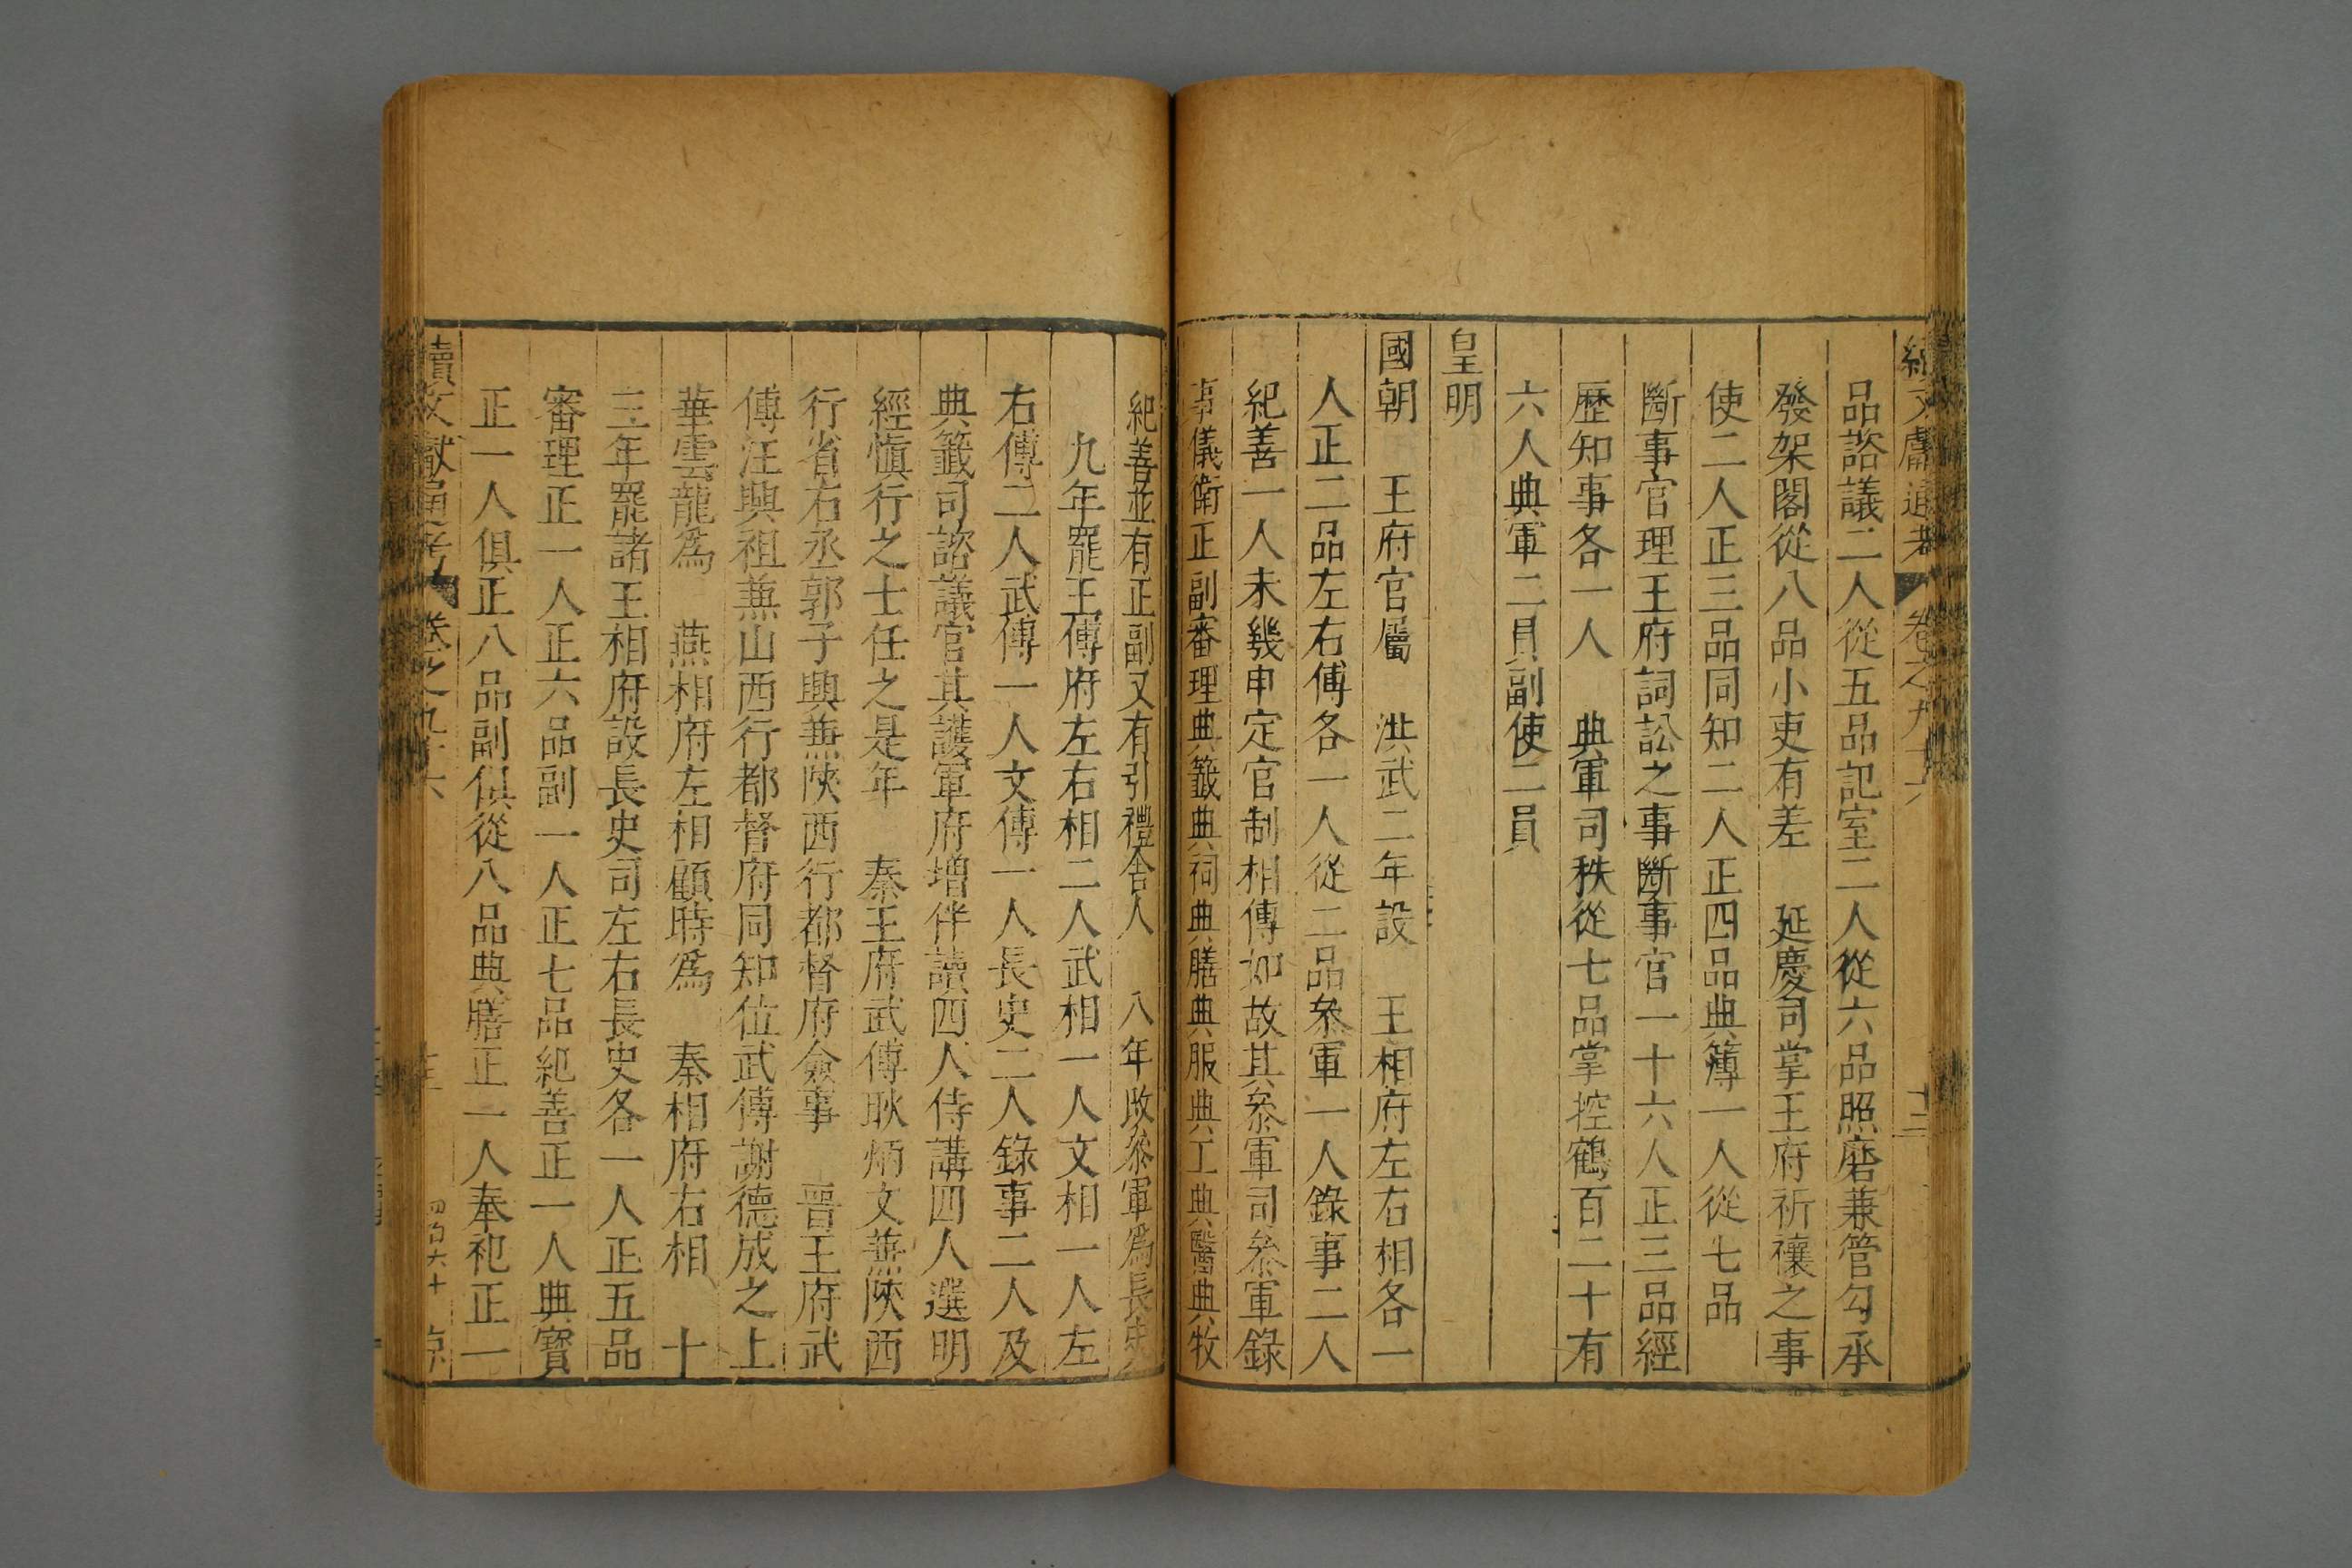 續文獻通考 卷之九十六 十三
品諮議二人從五品記室二人從六品照磨兼管勾承
發架閣從八品小吏有差 延慶司掌王府祈禳之事
使二人正三品同知二人正四品典簿一人從七品
斷事官理王府詞訟之事斷事官一十六人正三品經
歷知事各一人 典軍司秩從七品掌控鶴百二十有
六人典軍二員副使二員
皇明
國朝 王府官屬 洪武二年設 王相府左右相各一
人正二品左右傅各一人從二品叅軍一人錄事二人
紀善一人未幾申定官制相傅如故其叅軍司叅軍錄
事儀衛正副審理典籤典祠典膳典服典工典醫典牧
紀善並有正副又有引禮舍人 八年改叅軍爲長史
九年罷王傅府左右相二人武相一人文相一人左
右傅二人武傅一人文傅一人長史二人錄事二人及
典籤司諮議官其護軍府增伴讀四人侍講四人選明
經愼行之士任之是年 秦王府武傅耿炳文兼陝西
行省右丞郭子興兼陝西行都督府僉事 晋王府武
傅汪興祖兼山西行都督府同知位武傅謝德成之上
華雲龍爲 燕相府左相顧時爲 秦相府右相 十
三年罷諸王相府設長史司左右長史各一人正五品
審理正一人正六品副一人正七品紀善正一人典寳
正一人俱正八品副俱從八品典膳正一人奉祀正一
續文獻通考 卷之九十六 十三 四百六十